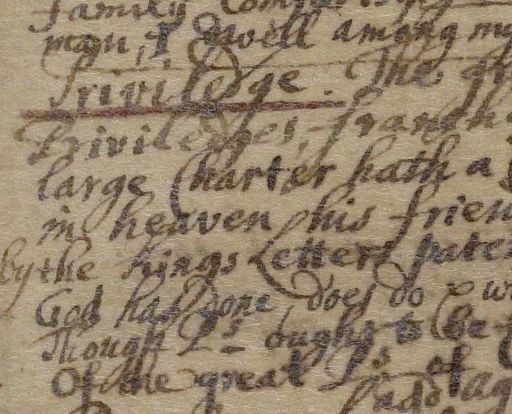 family Comfort
man, I dwell among my
Priviledge. The
Priviledges, franch
large Charter hath a
in heaven, his frien
by the kings Letters pate
God has done, does do & w
Though Ps. ought to be
Of the great Ps. of